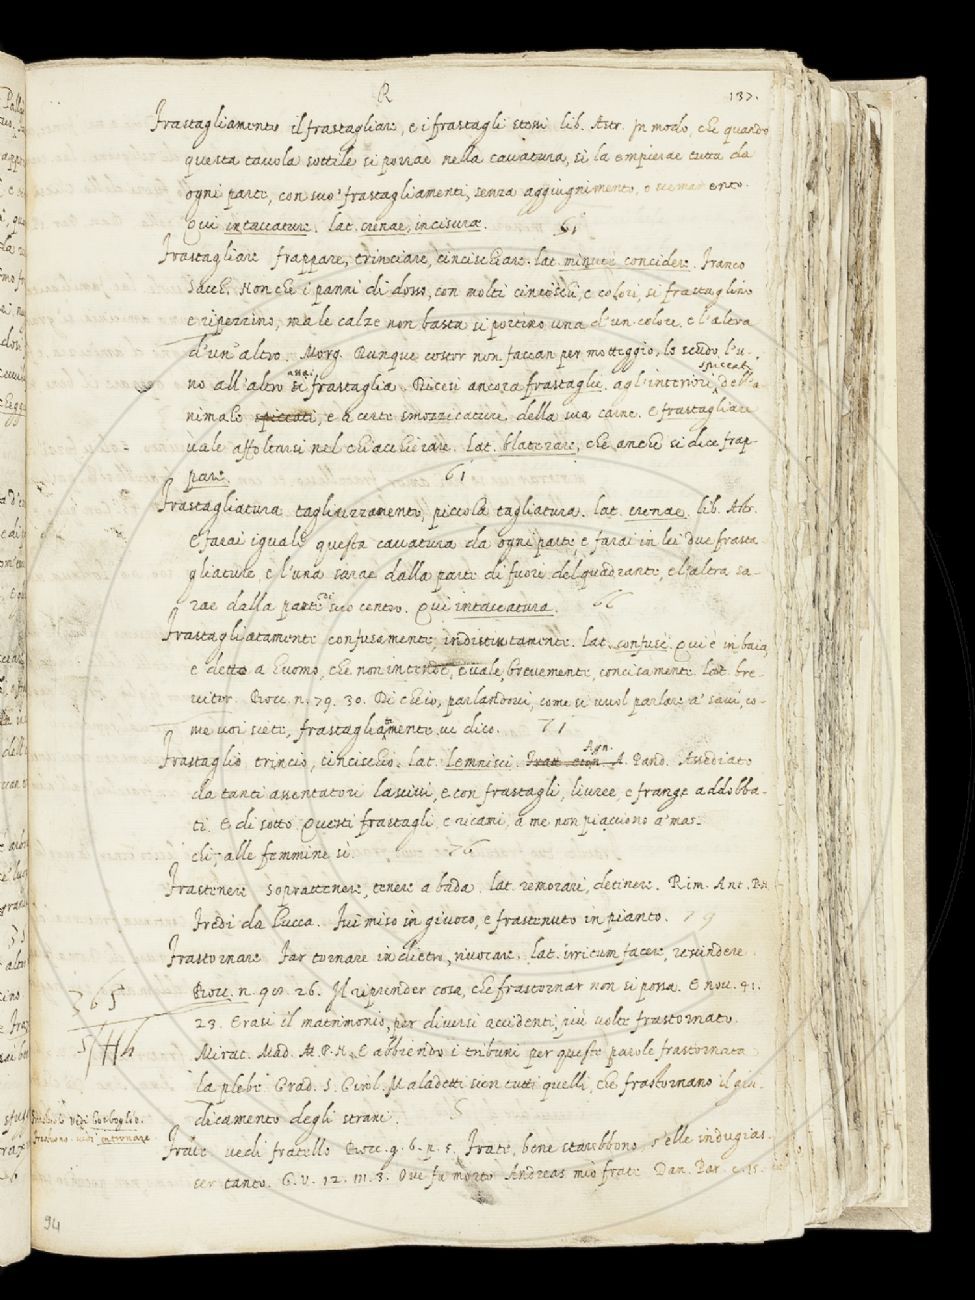 R
137.
Frastagliamento il frastagliare, e i frastagli stessi. lib. Astr. In modo, che quando
questa tavola sottile si porrae nella cavatura, si la empierae tutta da
ogni parte, con suo' frastagliamenti, senza aggiugnimento, o scemamento.
Qui intaccature. lat. crenae, incisurae. 61
Frastagliare frappare, trinciare, cincischiare. lat. minuti concidere. Franco
Sacch. Non che i panni di dosso, con molti cincischi, e colori, si frastaglino
e ripezzino, ma le calze non basta si portino una d'un colore, e l'altra
d'un' altro. Morg. Dunque costor non faccan per motteggio, lo scudo l'u-
no all'altro assai si frastaglia. Dicesi ancora frastaglie agl'interiori spiccati dell'a
nimale spiccati, e a certe smozzicature della sua carne. e frastagliare
vale affoltarsi nel chiacchierare. Lat. blaterare, che anche si dice frap-
pare. 61
Frastagliatura tagliuzzamento, piccola tagliatura. lat. crenae. lib. Astr.
E farai iguale questa cavatura da ogni parte, e farai in lei due frasta
gliature, e l'una sarae dalla parte di fuori del quadrante, e l'altra sa-
rae dalla parte del suo centro. Qui intaccatura. 66
Frastagliatamente confusamente, indistintamente. lat. confuse. Qui è in baia,
e detto a huomo, che non intende, e vale, brevemente, concisamente. lat. bre-
viter. Bocc. n. 79. 30. Di che io, parlandovi, come si vuol parlare a' savi, co-
me voi siete, frastagliatamente vi dico. 71
Frastaglio trincio, cincischio. lat. lemnisci. Agn. Pand. Assediato
da tanti assentatori lascivi, e con frastagli, livree, e frange addobba-
ti. E di sotto. Questi frastagli, e ricami, a me non piacciono a' mas-
chi, alle femmine sì. 76
Frastenere soprattenere, tenere a bada. lat. remorari, detinere. Rim. Ant. P.N.
Fredi da Lucca. Fui miso in giuoco, e frastenuto in pianto. 79
Frastornare Far tornare in dietro, rivocare. lat. irritum facere, rescindere.
Bocc. n. 98. 26. Il riprender cosa, che frastornar non si possa. E nov. 41.
23. Erasi il matrimonio, per diversi accidenti, più volte frastornato.
Mirac. Mad. M. P.N. E abbiendo i tribuni per queste parole frastornata
la plebe. Grad. S. Girol. Maladetti sien tutti quelli, che frastornano il giu-
dicamento degli strani. 5
Frate vedi fratello Bocc. g. 6. p. 5. Frate, bene starebbono, s'elle indugias-
ser tanto. G. V. 12. 111. 3. Ove fu morto Andreas mio frate. Dan. Par. c. 15.
365
vedi Garbuglio.
vedi intornare
94